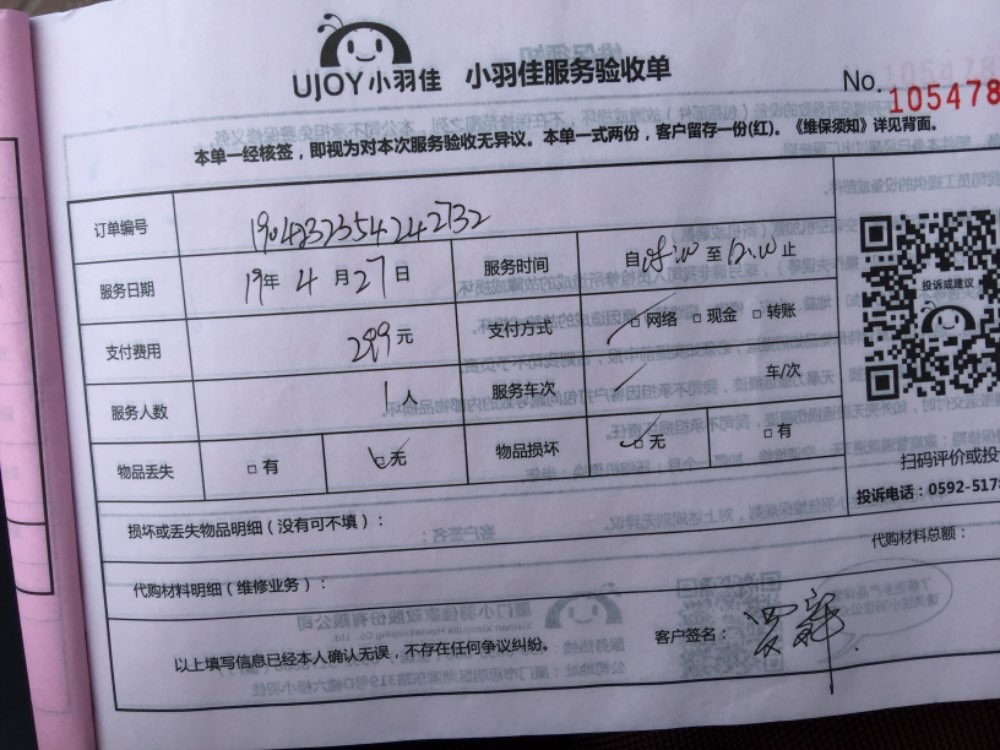 UJOY小羽佳 小羽佳服务验收单
No. 105478
本单一经核签，即视为对本次服务验收无异议。本单一式两份，客户留存一份(红)。《维保须知》详见背面。
订单编号
服务日期 19年 4月27日 服务时间 自 至12:00止
支付费用 299元 支付方式 □网络 □现金 □转账
服务人数 1人 服务车次 车/次
物品丢失 □有 □无 物品损坏 □无 □有
投诉或建议
扫码评价或投
投诉电话：0592-5178
损坏或丢失物品明细（没有可不填）：
代购材料总额：
代购材料明细（维修业务）：
客户签名：
以上填写信息已经本人确认无误，不存在任何争议纠纷。